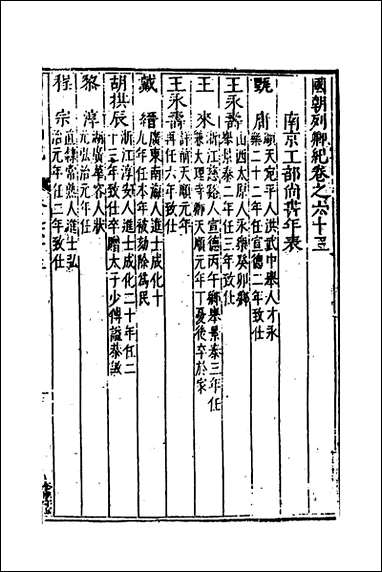 國朝列卿紀卷之六十五
南京工部尚書年表
甄庸 順天宛平人洪武中舉人才永
樂二十二年任宣德二年致仕
王永壽 山西太原人永樂癸卯鄉
舉景泰二年任三年致仕
王來 浙江慈谿人宣德丙午鄉舉景泰三年任
兼大理寺卿天順元年丁憂後卒於家
王永壽 詳前天順元年
再任六年致仕
戴縉 廣東南海人進士成化十
九年任本年被劾除為民
胡拱辰 浙江淳安人進士成化二十年任二
十三年致仕卒贈太子少傅謚恭敏
黎淳 湖廣華容人狀
元弘治元年任
程宗 直隸常熟人進士弘
治元年任二年致仕